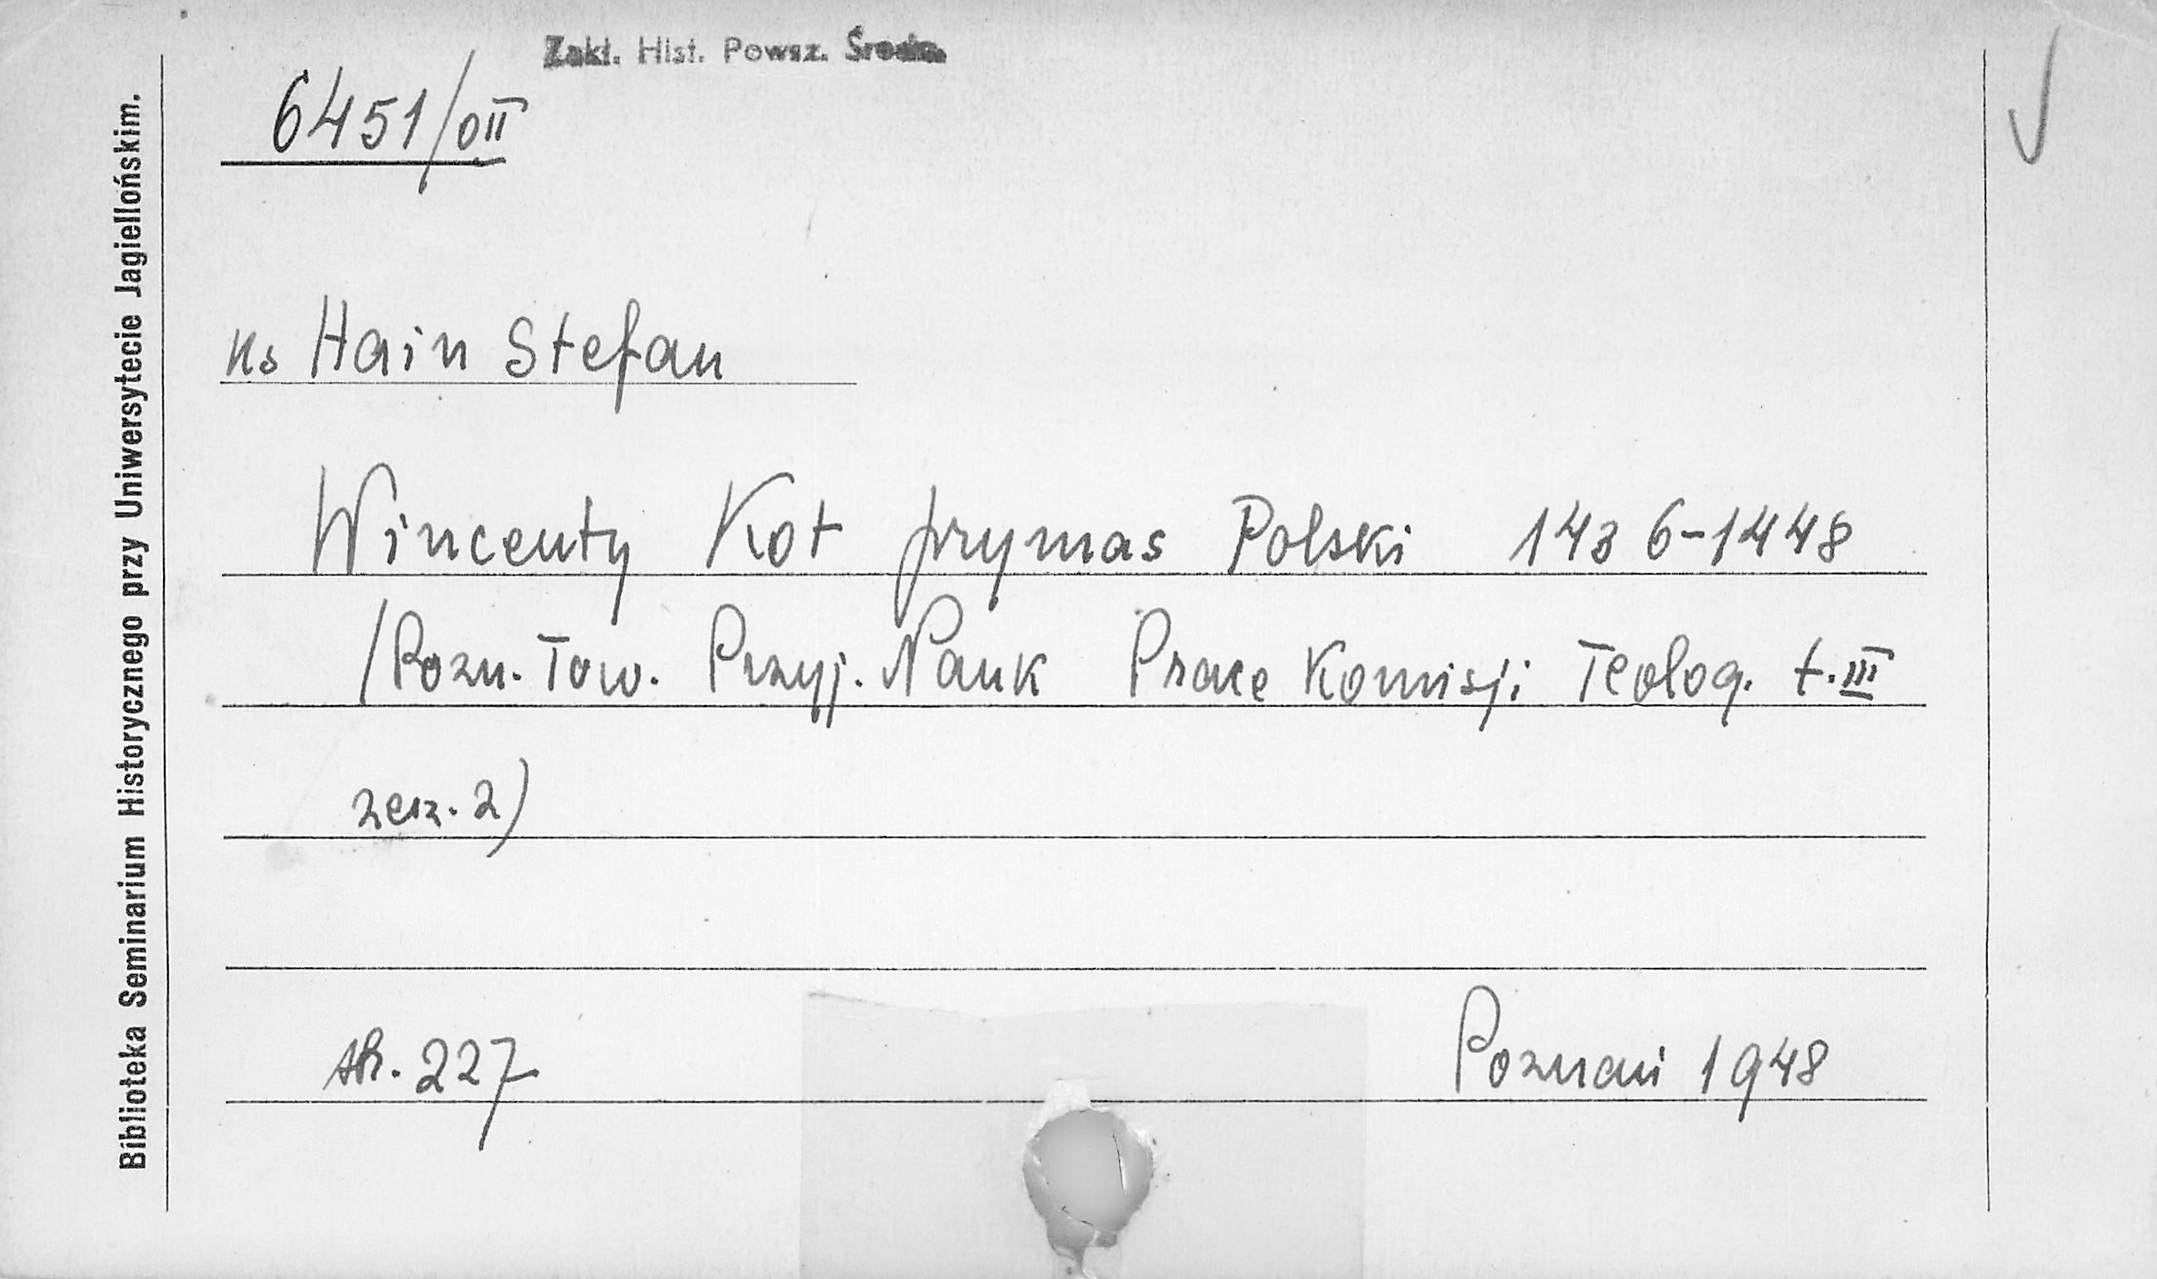 Zakł. Hist. Powsz. Średn.
6451/0II
Ks Hain Stefan
Wincenty Kot prymas Polski 1436-1448
/Pozn. Tow. Przyj. Nauk Prace Komisji Teolog. t. III
zesz. 2)
str. 227
Poznań 1948
Biblioteka Seminarium Historycznego przy Uniwersytecie Jagiellońskim.